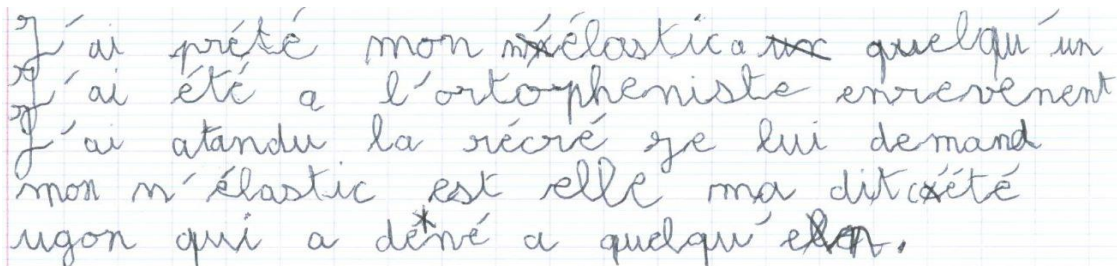 J'ai prété mon élastic a quelqu'un
J'ai été a l'ortopheniste enrevenent
J'ai atandu la récré je lui demand
mon n'élastic est elle ma dit cété
ugon qui a déné a quelqu'